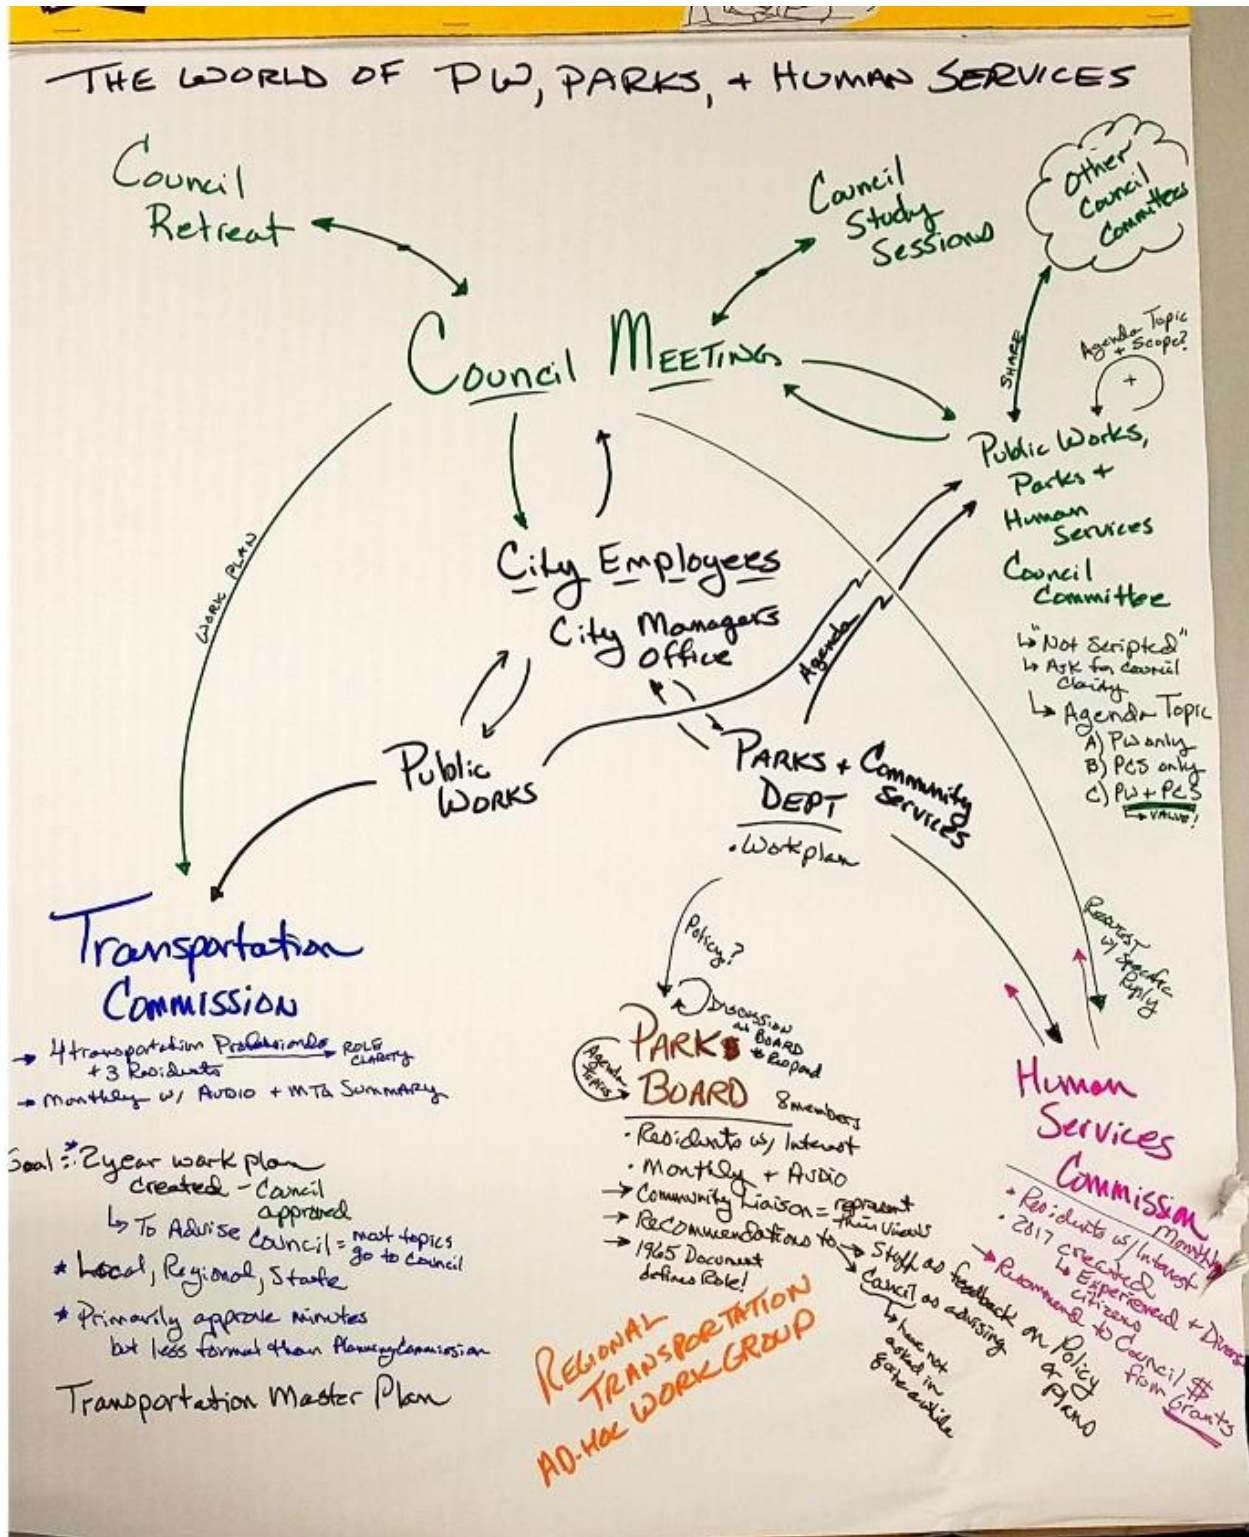 THE WORLD OF PW, PARKS, + HUMAN SERVICES
Council
Retreat
Council
Study
Sessions
Other
Council
Committees
SHARE
Agenda Topic
+ Scope?
+
Council MEETINGS
Public Works,
Parks +
Human
Services
Council
Committee
↳ "Not Scripted"
↳ Ask for council
Clarity
↳ Agenda Topic
A) PW only
B) PCS only
C) PW + PCS
↳ VALUE!
WORK PLAN
City Employees
City Managers
Office
Agenda
Public
WORKS
PARKS + Community
Services
DEPT
• Workplan
Policy?
Request
w/ Specific
Reply
Transportation
COMMISSION
→ 4 transportation Professionals → ROLE
CLARITY
+ 3 Residents
→ Monthly w/ AUDIO + MTG SUMMARY
Goal: * 2 year work plan
created - Council
approved
↳ To Advise Council = most topics
go to council
* Local, Regional, State
* Primarily approve minutes
but less formal than Planning Commission
Transportation Master Plan
DISCUSSION
as BOARD
to Respond
Agenda
Topics
PARKS
BOARD 8 members
• Residents w/ Interest
• Monthly + AUDIO
→ Community Liaison = represent
their views
→ Recommendations to → Staff as feedback on Policy
or plans
→ Council as advising
↳ have not
asked in
quite awhile
→ 1965 Document
defines Role!
REGIONAL
TRANSPORTATION
AD-HOC WORK GROUP
Human
Services
Commission
• Residents w/ Interest
Monthly
• 2017 created
↳ Experienced + Divers
citizens
→ Recommend to Council $
from Grants